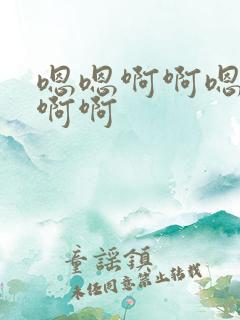 嗯嗯啊啊嗯
啊啊
童謠鎮
未经同意禁止转载